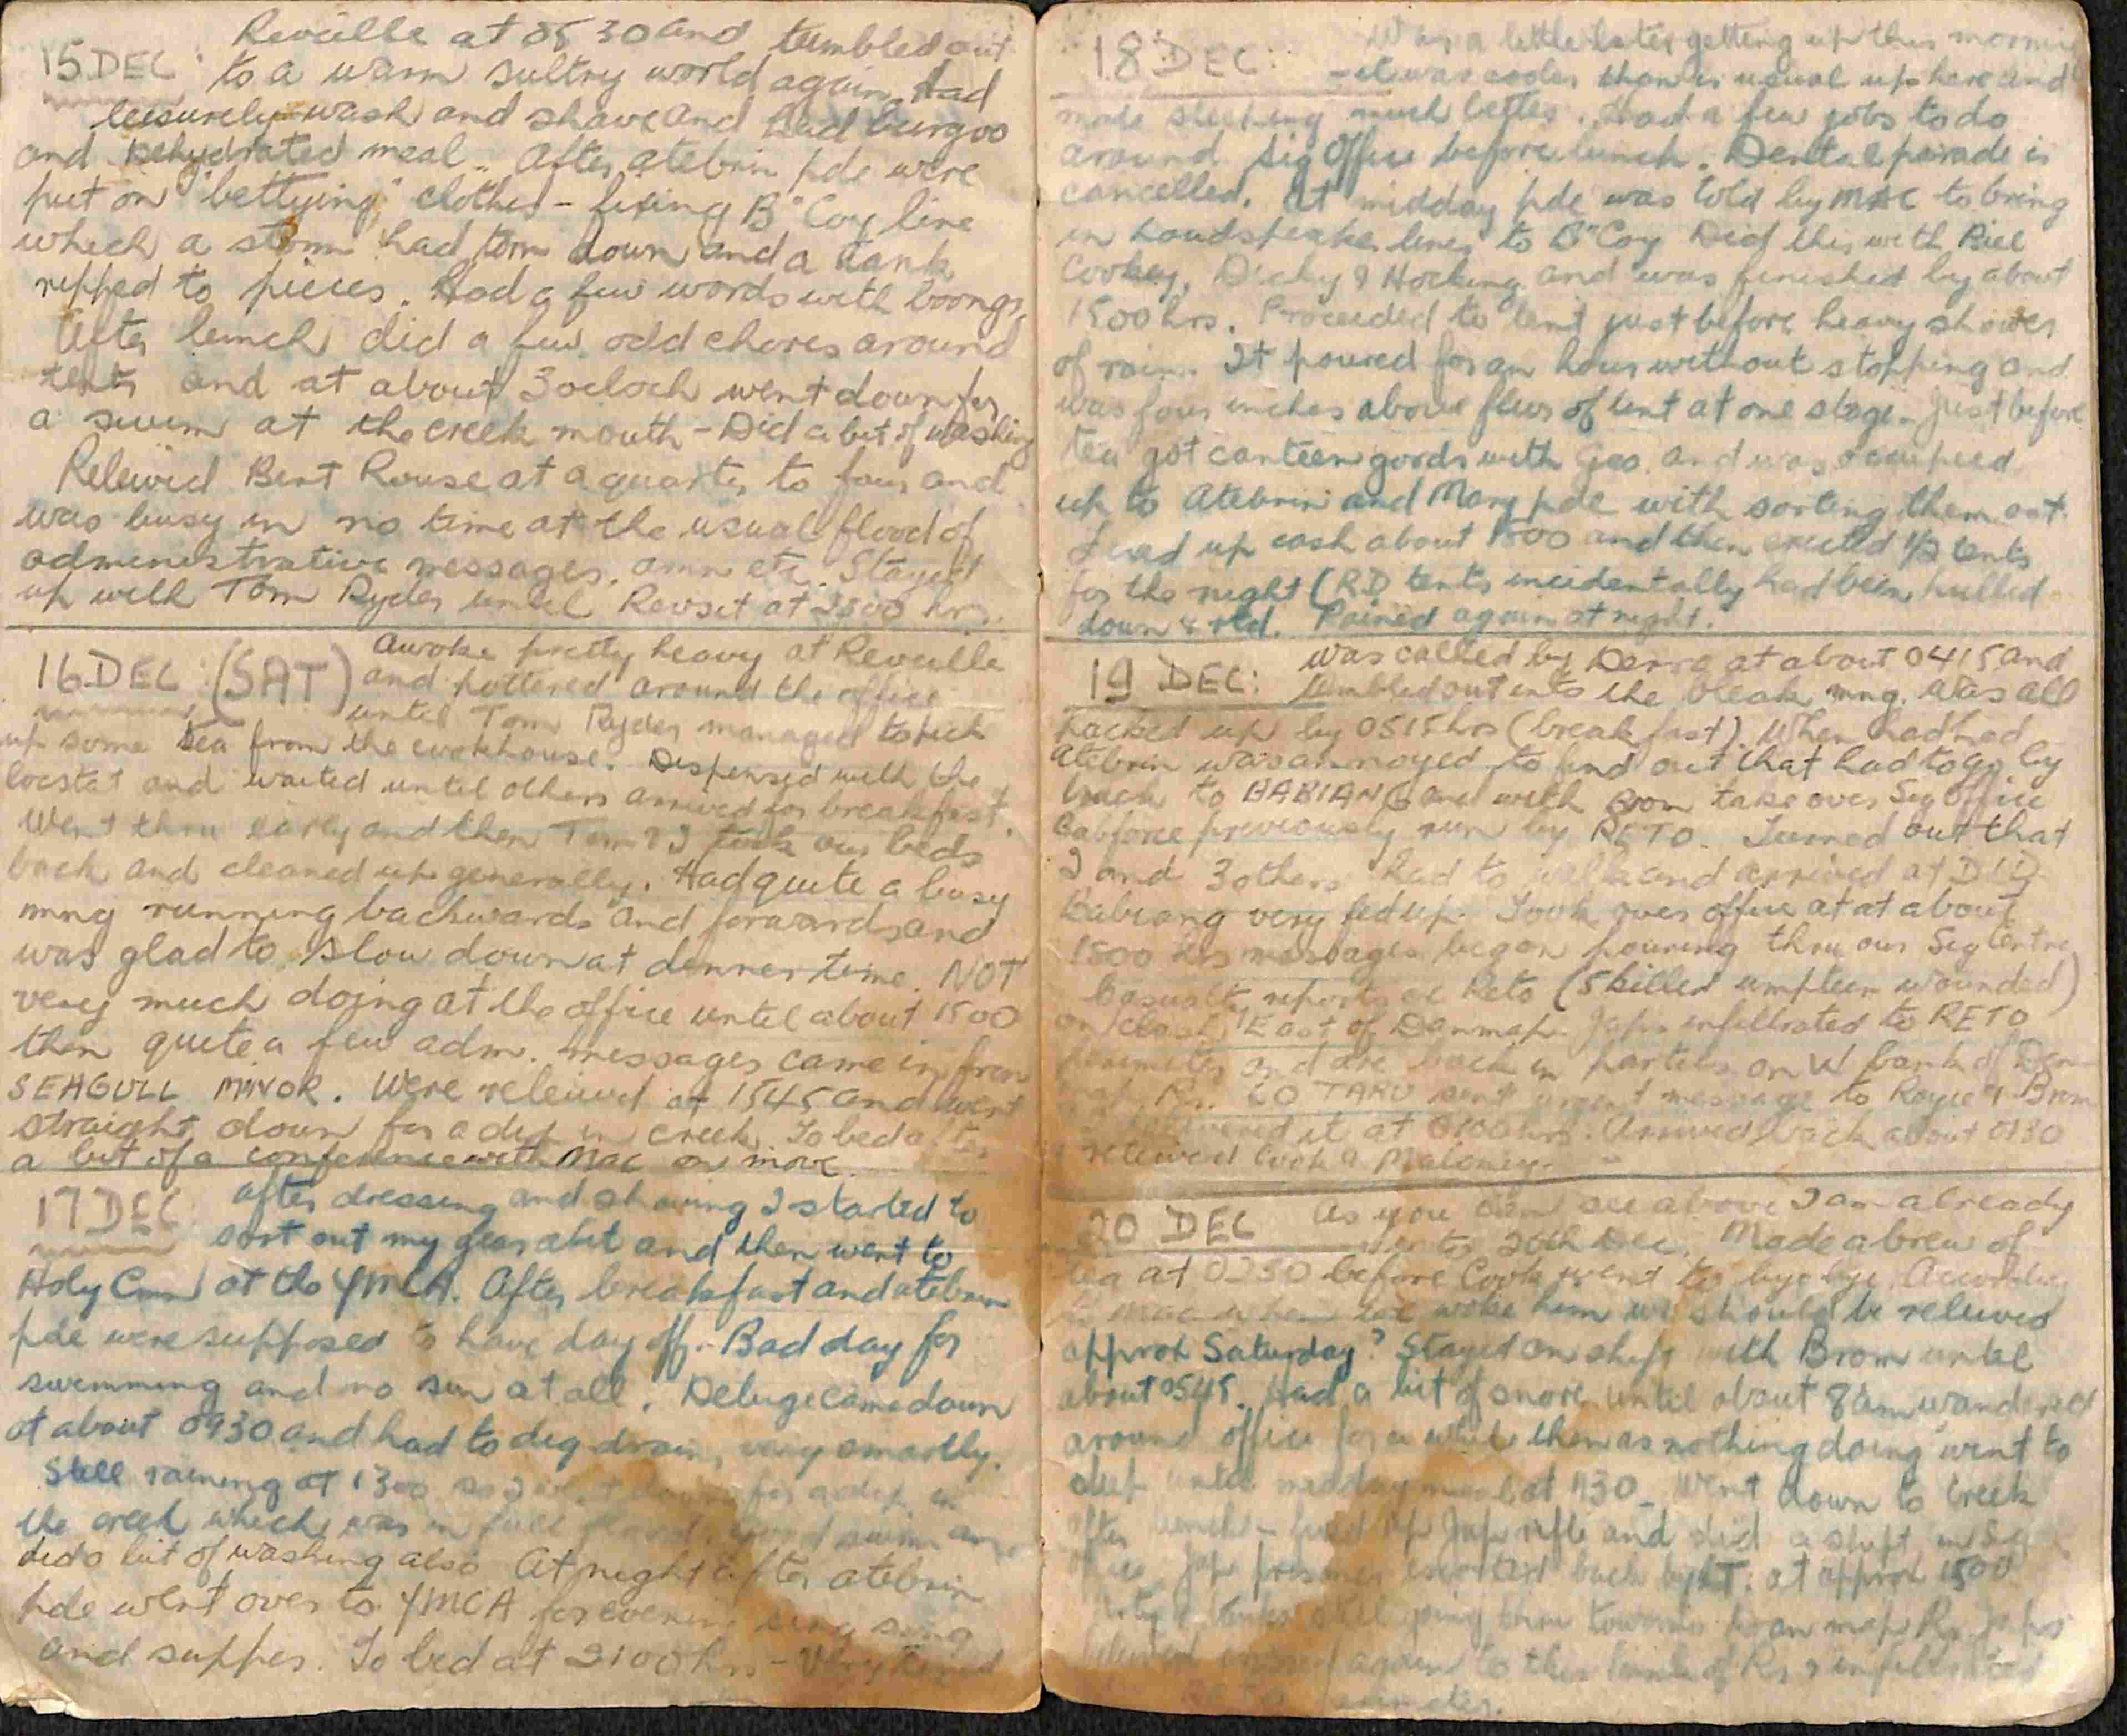 15 DEC: Reveille at 0530 and tumbled out
to a warm sultry world again. Had
leisurely wash and shave and had burgoo
and dehydrated meal. After atebrin pde were
put on "bettying" clothes - fixing B" Coy line
which a storm had torn down and a tank
ripped to pieces. Had a few words with boongs.
After lunch did a few odd chores around
tents and at about 3 oclock went down for
a swim at the creek mouth - Did a bit of washing
Releived Bert Rouse at a quarter to four and
was busy in no time at the usual flood of
administrative messages, amn etc. Stayed
up with Tom Ryder until Revset at 2300 hrs.
16 DEC: (SAT) Awoke pretty heavy at Reveille
and pottered around the office
until Tom Ryder managed to pick
up some tea from the cookhouse. Dispensed with the
locstat and waited until others arrived for breakfast.
Went thru early and then Tom & I took our beds
back and cleaned up generally. Had quite a busy
mng running backwards and forwards and
was glad to slow down at dinner time. NOT
very much doing at the office until about 1500
then quite a few adm. messages came in from
SEAGULL MINOR. Were releived at 1545 and went
straight down for a dip in creek. To bed after
a bit of a conference with Mac on move.
17 DEC: After dressing and shaving I started to
sort out my gear abit and then went to
Holy Comn at the YMCA. After breakfast and atebrin
pde were supposed to have day off. Bad day for
swimming and no sun at all. Deluge came down
at about 0930 and had to dig drain, very smartly.
Still raining at 1300 so I went down for a dip in
the creek which was in full flood. Good swim and
did a bit of washing also. At night after atebrin
pde went over to YMCA for evening sing song
and supper. To bed at 2100 hrs - Very tired
18 DEC: Was a little later getting up this morning
- it was cooler than is usual up here and
made sleeping much better. Had a few jobs to do
around Sig Office before lunch. Dental parade is
cancelled. At midday pde was told by MAC to bring
in loudspeaker lines to B" Coy. Did this with
Cookey, Dicky & Hocking and was finished by about
1500 hrs. Proceeded to tent just before heavy shower
of rain. It poured for an hour without stopping and
was four inches above floor of tent at one stage. Just before
tea got canteen goods with Geo. and was occupied
up to Atebrin and Mary pde with sorting them out.
up cash about 1800 and then erected 1/2 tents
for the night (RD tents incidentally had been pulled
down & rtd. Rained again at night.
19 DEC: Was called by at about 0415 and
tumbled out into the bleak mng. Was all
packed up by 0515 hrs (breakfast). When had had
Atebrin was annoyed to find out that had to go
back to BABIANG and with Brom take over Sig Office
Babforce previously run by RETO. Turned out that
I and 3 others had to walk and arrived at
Babiang very fed up. Took over office at at about
1500 hrs messages began pouring thru our Sig Centre
Casualty reports Reto (5 killed umpteen wounded)
East of Danmap. Japs infiltrated to RETO
perimeter and are back in parties on W bank of
CO TARU sent urgent message to Royce & Brom
delivered it at 0100 hrs. Arrived back about 0130
releived Cook & Maloney.
20 DEC As you can see above I am already
20th Dec. Made a brew of
tea at 0230 before Cook went to bye bye. According
to Mac when we woke him we should be releived
approx Saturday? Stayed on shift with Brom until
about 0545. Had a bit of snore until about 8 am wandered
around office for a while then as nothing doing went to
sleep until midday meal at 1130. Went down to Creek
after lunch - fired up Jap rifle and did a shift in Sig
Office. Jap prisoner escorted back by at approx 1500
still going thru towards Danmap R. Japs
believed crossed again to this bank of R. & infiltrated
perimeter.